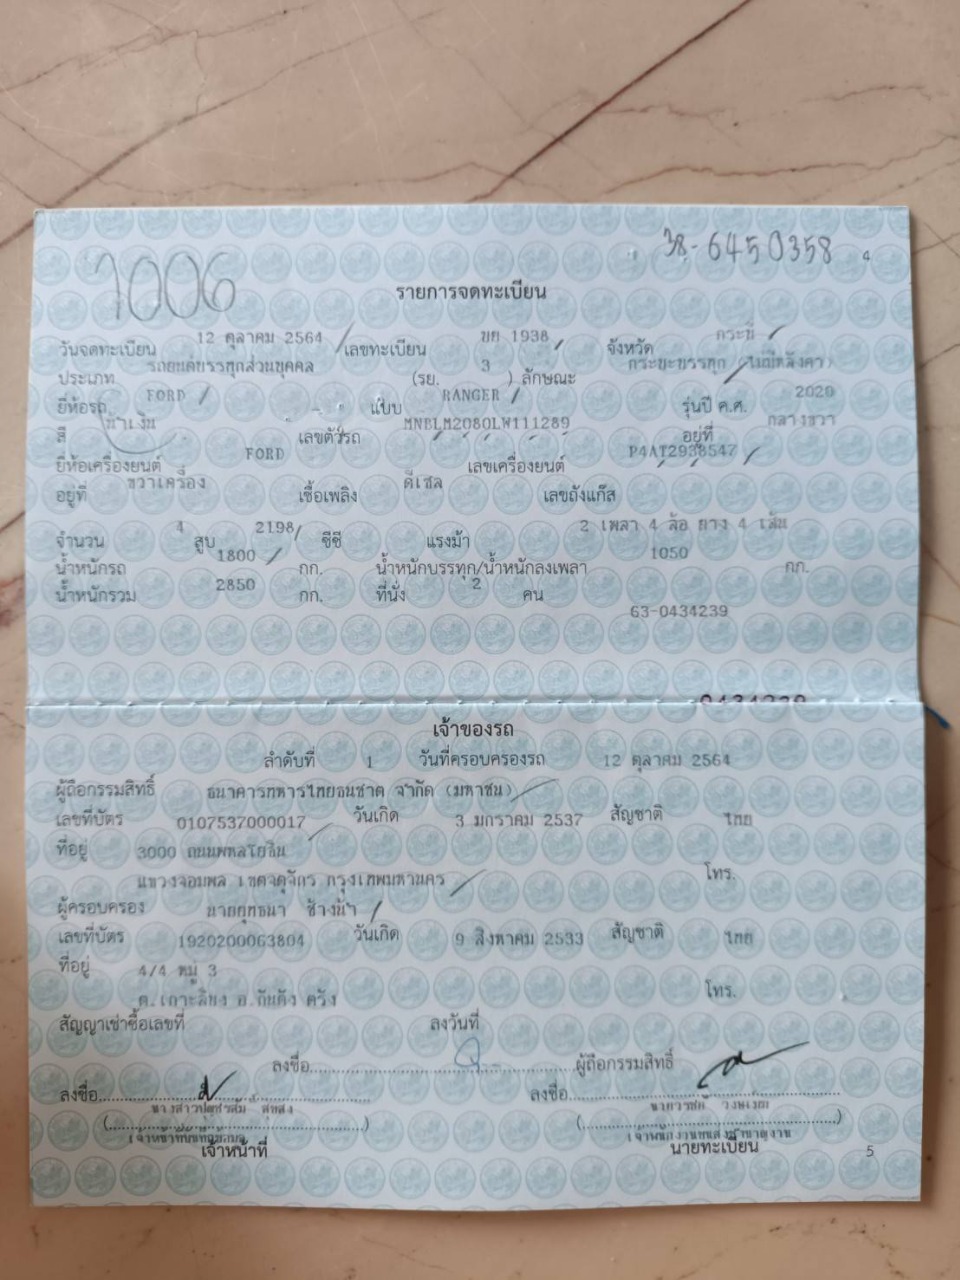 38-6450358 4
1006
รายการจดทะเบียน
วันจดทะเบียน 12 ตุลาคม 2564 เลขทะเบียน ขย 1938 จังหวัด กระบี่
ประเภท รถยนต์บรรทุกส่วนบุคคล (รย. 3 ) ลักษณะ กระบะบรรทุก (ไม่มีหลังคา)
ยี่ห้อรถ FORD แบบ RANGER รุ่นปี ค.ศ. 2020
สี น้ำเงิน เลขตัวรถ MNBLM2080LW111289 อยู่ที่ กลางขวา
ยี่ห้อเครื่องยนต์ FORD เลขเครื่องยนต์ P4AT2938547
อยู่ที่ ขวาเครื่อง เชื้อเพลิง ดีเซล เลขถังแก๊ส
จำนวน 4 สูบ 2198 ซีซี แรงม้า 2 เพลา 4 ล้อ ยาง 4 เส้น
น้ำหนักรถ 1800 กก. น้ำหนักบรรทุก/น้ำหนักลงเพลา 1050 กก.
น้ำหนักรวม 2850 กก. ที่นั่ง 2 คน
63-0434239
เจ้าของรถ
ลำดับที่ 1 วันที่ครอบครองรถ 12 ตุลาคม 2564
ผู้ถือกรรมสิทธิ์ ธนาคารทหารไทยธนชาต จำกัด (มหาชน)
เลขที่บัตร 0107537000017 วันเกิด 3 มกราคม 2537 สัญชาติ ไทย
ที่อยู่ 3000 ถนนพหลโยธิน
แขวงจอมพล เขตจตุจักร กรุงเทพมหานคร โทร.
ผู้ครอบครอง นายยุทธนา ช้างน้ำ
เลขที่บัตร 1920200063804 วันเกิด 9 สิงหาคม 2533 สัญชาติ ไทย
ที่อยู่ 4/4 หมู่ 3
ต.เกาะลิบง อ.กันตัง ตรัง โทร.
สัญญาเช่าซื้อเลขที่ ลงวันที่
ลงชื่อ ผู้ถือกรรมสิทธิ์
ลงชื่อ ลงชื่อ
เจ้าหน้าที่ นายทะเบียน 5